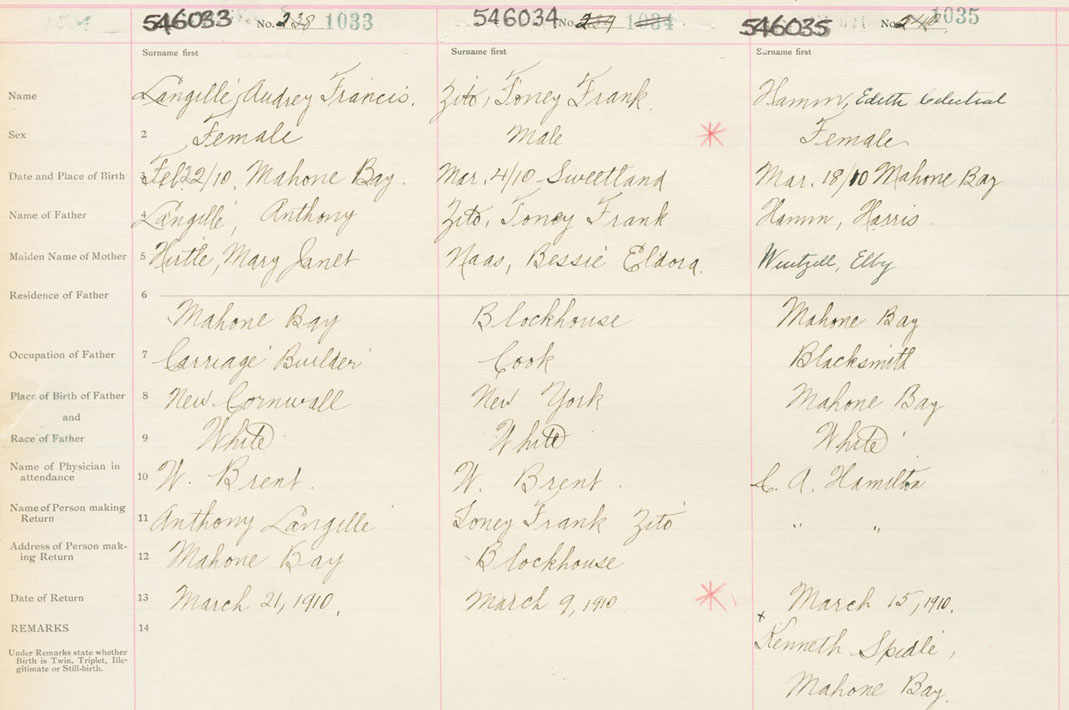 546033 No. 238 1033
546034 No. 239 1034
546035 No. 240 1035
Surname first Surname first Surname first
Name Langille, Audrey Francis. Zito, Toney Frank Hamm, Edith Celestial
Sex 2 Female Male Female
Date and Place of Birth 3 Feb 22/10, Mahone Bay. Mar. 4/10 Sweetland Mar. 18/10 Mahone Bay
Name of Father 4 Langille, Anthony Zito, Toney Frank Hamm, Harris.
Maiden Name of Mother 5 Hirtle, Mary Janet Naas, Bessie Eldora. Wentzell, Elby
Residence of Father 6
Mahone Bay Blockhouse Mahone Bay
Occupation of Father 7 Carriage Builder Cook Blacksmith
Place of Birth of Father 8 New Cornwall New York Mahone Bay
and
Race of Father 9 White White White
Name of Physician in
attendance 10 W. Brent. W. Brent. C. A. Hamilton
Name of Person making
Return 11 Anthony Langille Toney Frank Zito " "
Address of Person mak-
ing Return 12 Mahone Bay Blockhouse
Date of Return 13 March 21, 1910. March 9, 1910. March 15, 1910.
REMARKS 14 x Kenneth Spidle,
Under Remarks state whether
Birth is Twin, Triplet, Ille-
gitimate or Still-birth.
Mahone Bay.